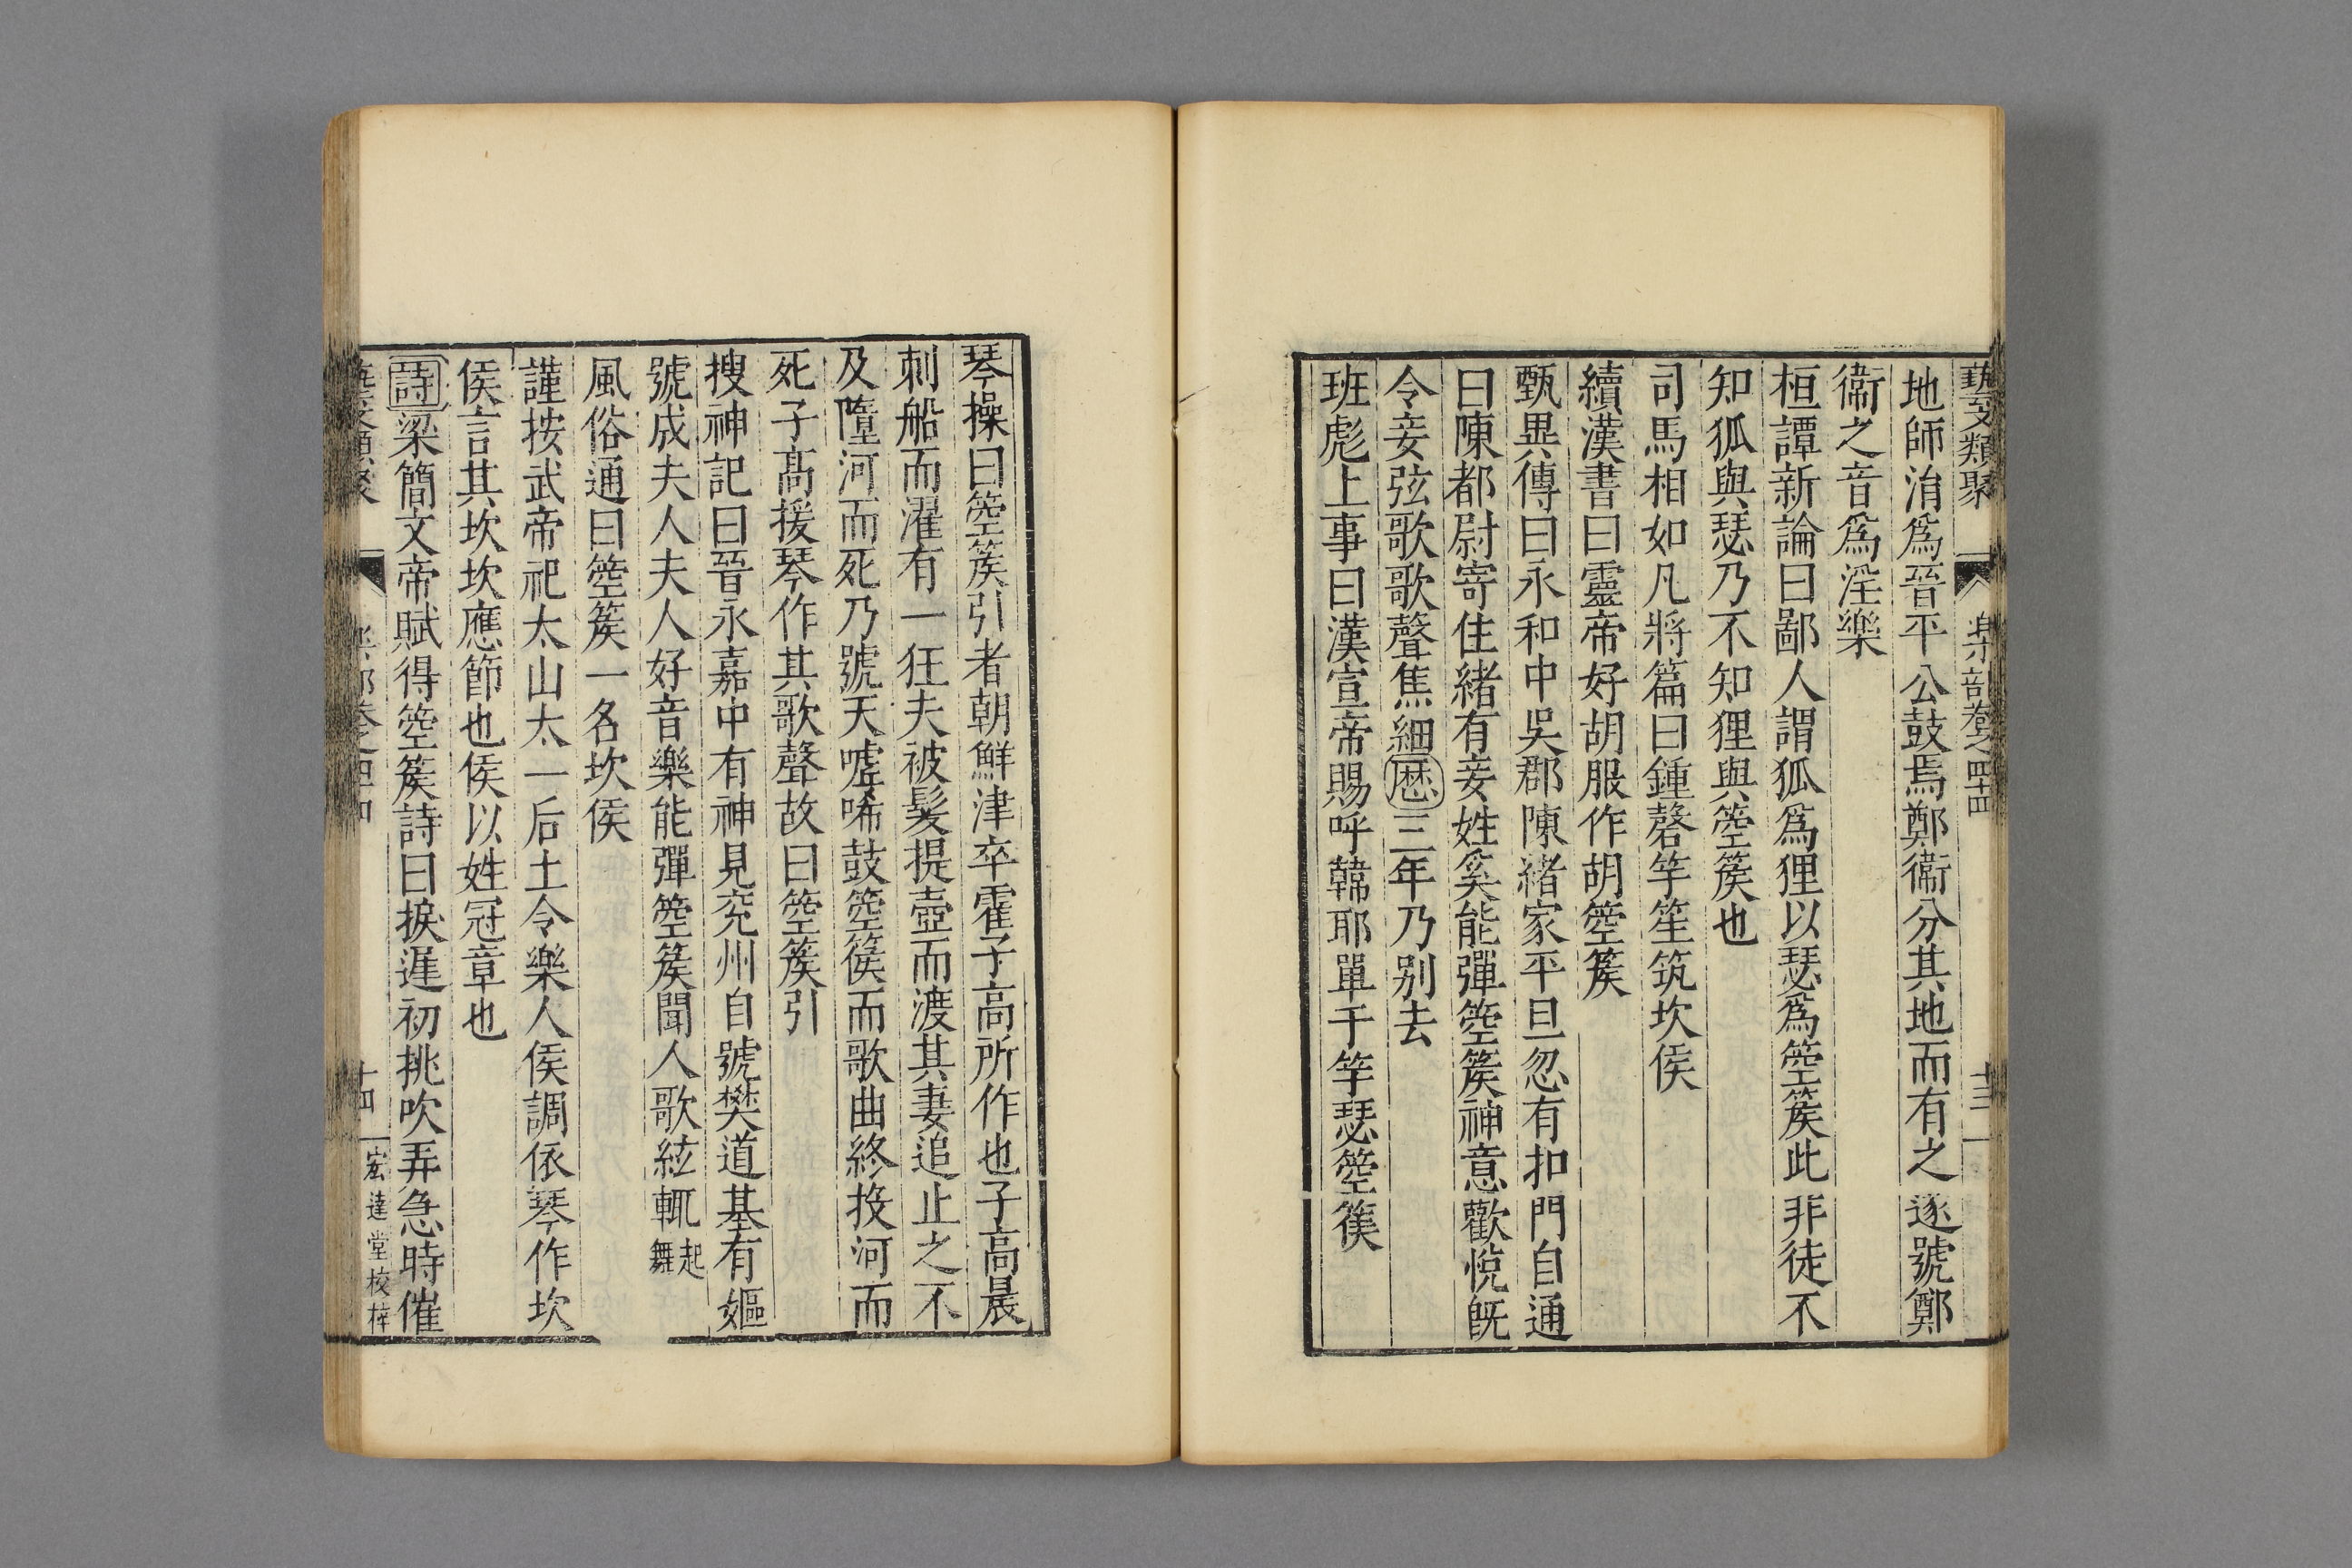 藝文類聚 樂部卷之四十四 十三
地師涓爲晉平公鼓焉鄭衞分其地而有之遂號鄭
衞之音爲淫樂
桓譚新論曰鄙人謂狐爲狸以瑟爲箜篌此非徒不
知狐與瑟乃不知狸與箜篌也
司馬相如凡將篇曰鍾磬竽笙筑坎侯
續漢書曰靈帝好胡服作胡箜篌
甄異傳曰永和中吳郡陳緒家平旦忽有扣門自通
曰陳都尉寄住緒有妾姓奚能彈箜篌神意歡悅旣
令妾弦歌歌聲焦細歷三年乃別去
班彪上事曰漢宣帝賜呼韓耶單于竽瑟箜篌
琴操曰箜篌引者朝鮮津卒霍子高所作也子高晨
刺船而濯有一狂夫被髮提壺而渡其妻追止之不
及墮河而死乃號天噓唏鼓箜篌而歌曲終投河而
死子髙援琴作其歌聲故曰箜篌引
搜神記曰晉永嘉中有神見兖州自號樊道基有嫗
號成夫人夫人好音樂能彈箜篌聞人歌絃輒起舞
風俗通曰箜篌一名坎侯
謹按武帝祀太山太一后土令樂人侯調依琴作坎
侯言其坎坎應節也侯以姓冠章也
詩梁簡文帝賦得箜篌詩曰捩遲初挑吹弄急時催
藝文類聚 樂部卷之四十四 十四 宏達堂校梓